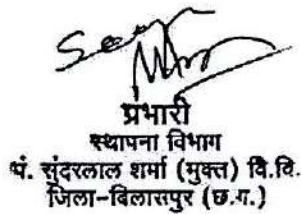 प्रभारी
स्थापना विभाग
पं. सुंदरलाल शर्मा (मुक्त) वि.वि.
जिला-बिलासपुर (छ.ग.)